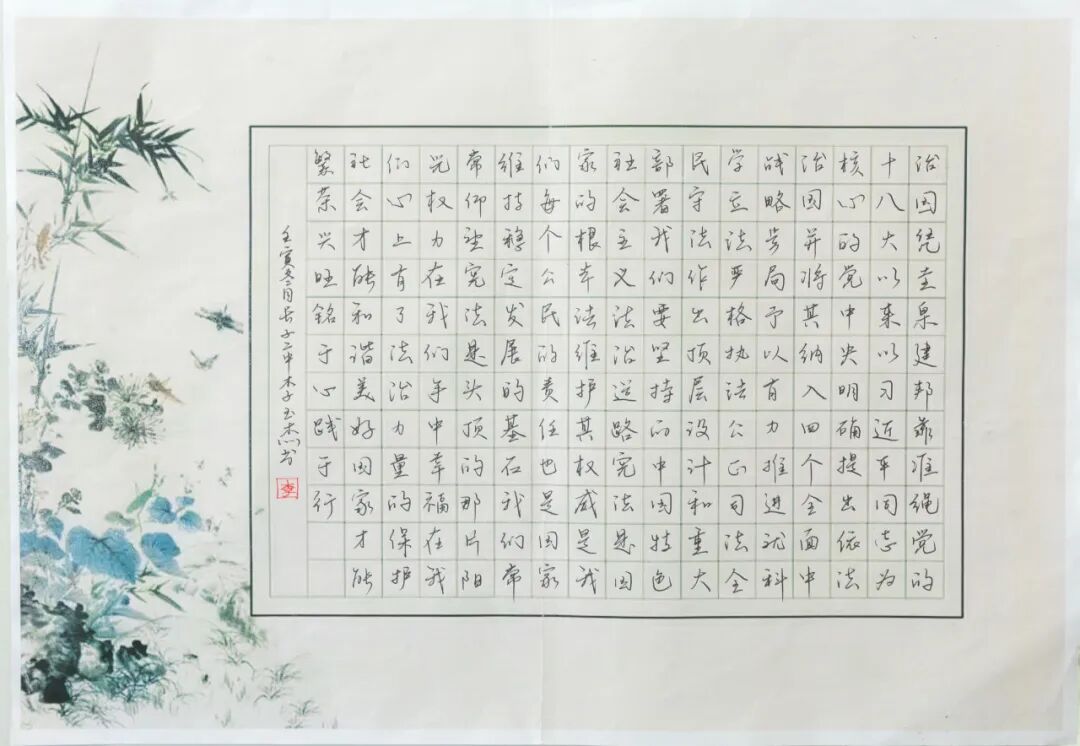 治国凭圭臬建邦靠准绳党的
十八大以来以习近平同志为
核心的党中央明确提出依法
治国并将其纳入四个全面中
战略局予以有力推进就科
学立法严格执法公正司法全
民守法作出顶层设计和重大
部署我们要坚持的中国特色
社会主义法治道路宪法是国
家的根本法维护其权威是我
们每个公民的责任也是国家
维持稳定发展的基石我们常
常仰望宪法是头顶的那片阳
光权力在我们手中幸福在我
们心上有了法治力量的保护
社会才能和谐美好国家才能
繁荣兴旺铭于心践于行
壬寅冬月长子二中木子玉杰书
李